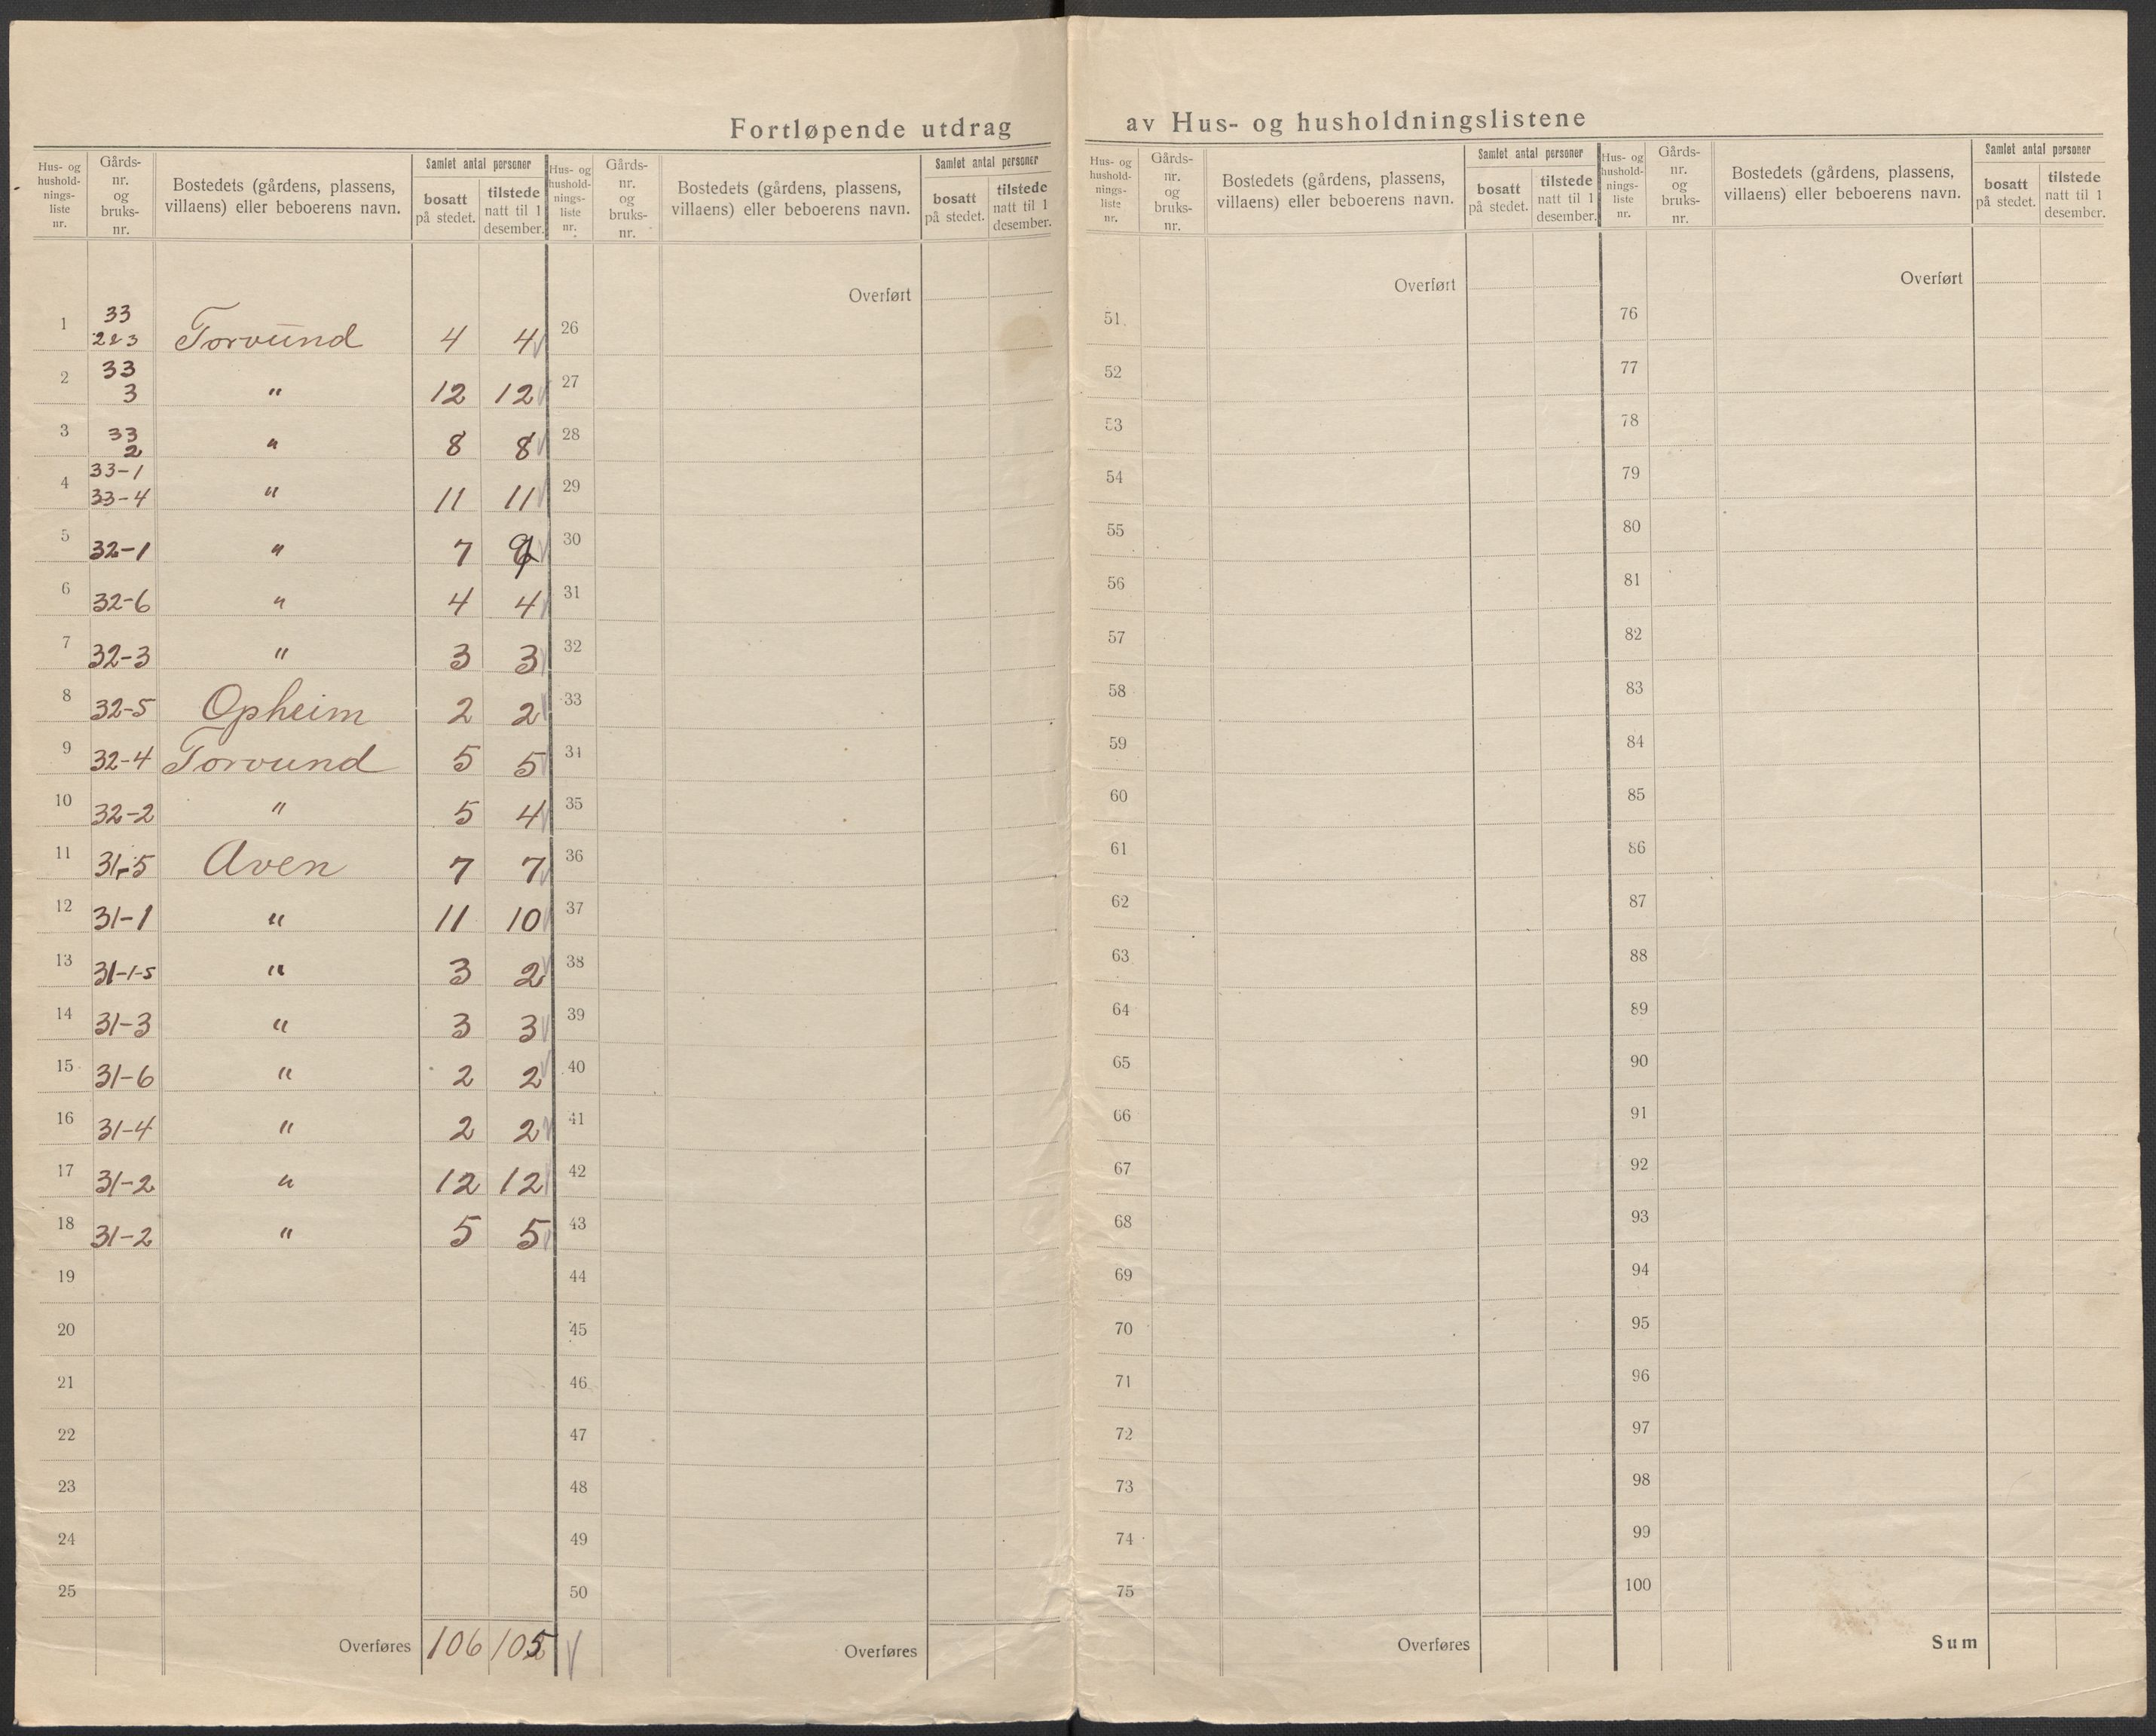 Fortløpende utdrag av Hus- og husholdningslistene
Hus- og hushold-nings-liste nr. Gårds-nr. og bruks-nr. Bostedets (gårdens, plassens, villaens) eller beboerens navn. Samlet antal personer bosatt på stedet. tilstede natt til 1 desember.
Hus- og hushold-nings-liste nr. Gårds-nr. og bruks-nr. Bostedets (gårdens, plassens, villaens) eller beboerens navn. Samlet antal personer bosatt på stedet. tilstede natt til 1 desember.
Hus- og hushold-nings-liste nr. Gårds-nr. og bruks-nr. Bostedets (gårdens, plassens, villaens) eller beboerens navn. Samlet antal personer bosatt på stedet. tilstede natt til 1 desember.
Hus- og hushold-nings-liste nr. Gårds-nr. og bruks-nr. Bostedets (gårdens, plassens, villaens) eller beboerens navn. Samlet antal personer bosatt på stedet. tilstede natt til 1 desember.
Overført Overført Overført
1 33 2&3 Torvund 4 4 26 51 76
2 33 3 " 12 12 27 52 77
3 33 2 " 8 8 28 53 78
4 33-1 33-4 " 11 11 29 54 79
5 32-1 " 7 9 30 55 80
6 32-6 " 4 4 31 56 81
7 32-3 " 3 3 32 57 82
8 32-5 Opheim 2 2 33 58 83
9 32-4 Torvund 5 5 34 59 84
10 32-2 " 5 4 35 60 85
11 31-5 Aven 7 7 36 61 86
12 31-1 " 11 10 37 62 87
13 31-1-5 " 3 2 38 63 88
14 31-3 " 3 3 39 64 89
15 31-6 " 2 2 40 65 90
16 31-4 " 2 2 41 66 91
17 31-2 " 12 12 42 67 92
18 31-2 " 5 5 43 68 93
19 44 69 94
20 45 70 95
21 46 71 96
22 47 72 97
23 48 73 98
24 49 74 99
25 50 75 100
Overføres 106 105 Overføres Overføres Sum